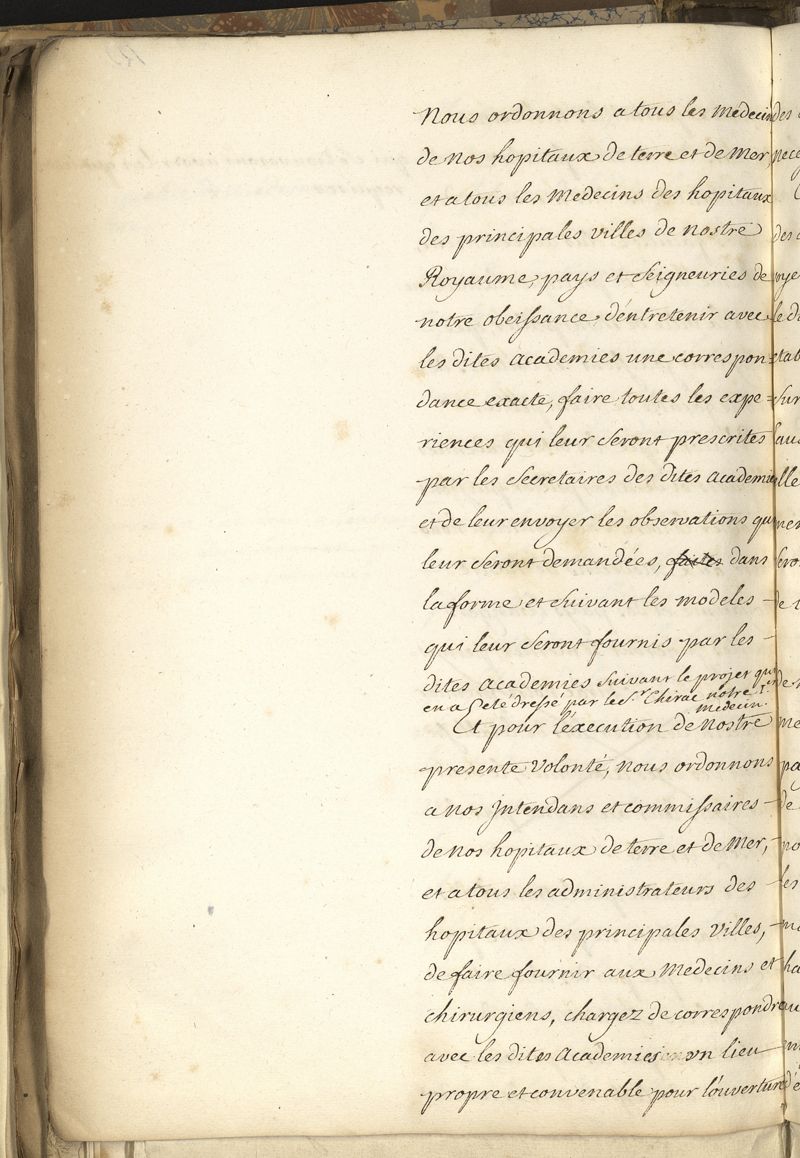 Nous ordonnons a tous les Medecin
de Nos hopitaux de terre et de Mer,
et a tous les Medecins des hopitaux
des principales villes de nostre
Royaume, pays et Seigneuries de
notre obeissance, d'entretenir avec
les dites academies une correspon=
dance exacte, faire toutes les expe=
riences qui leur seront prescrites
par les Secretaires des dites academie
et de leur envoyer les observations qu
leur seront demandées, faites dans
la forme et suivant les modeles -
qui leur seront fournis par les -
dites academies suivant le projet qui
en a eté dressé par le Sr. Chirac notre 1er
medecin.
Et pour l'execution de nostre
presente Volonté, nous ordonnons
a nos Intendans et commissaires -
de Nos hopitaux de terre et de Mer,
et a tous les administrateurs des -
hopitaux des principales Villes,
de faire fournir aux Medecins et
chirurgiens, chargez de correspondre
avec les dites academies un lieu
propre et convenable pour l'ouverture